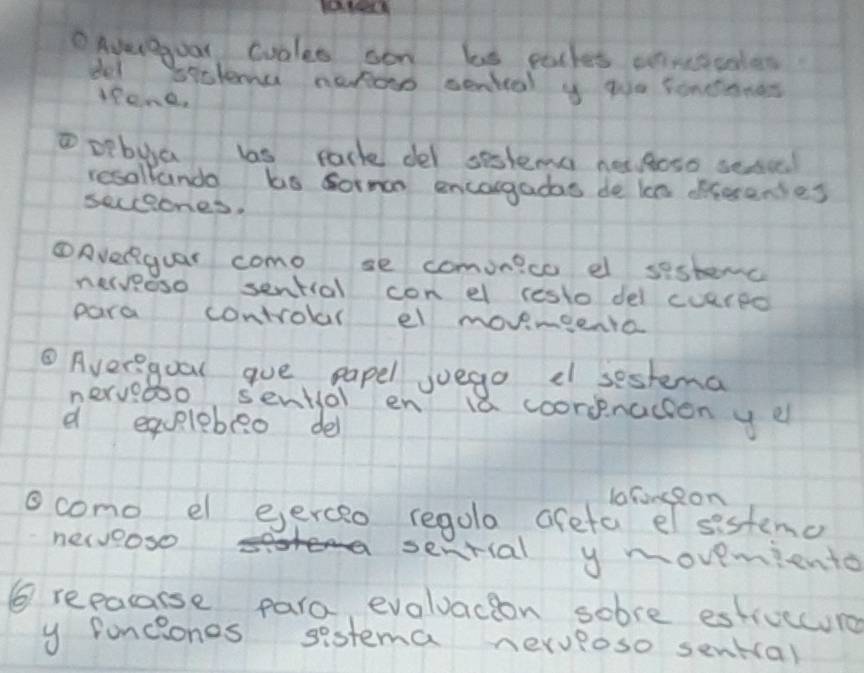 ① Avereguar cuales son las partes prinsesales
del sestema nervioso sentral y que fonsiones
tiene.
② Debuja las parte del sestema nerveoso sentral
resaltando las forman encargadas de las diferentes
secceones.
③ Avereguar como se comuneca el sestema
nerveoso sentral con el resto del cuerpo
para controlar el movemeenta
④ Avereguar que papel juego el sestema
nerveoso sentral en la coordenacion y el
d equelebreo del
lafunceon
⑤ como el ejerceo regula afeta el sestema
nerveoso sestema sentral y movemiento
⑥ reparase para evaluacion sobre estruccura
y funceones sestema nerveoso sentral